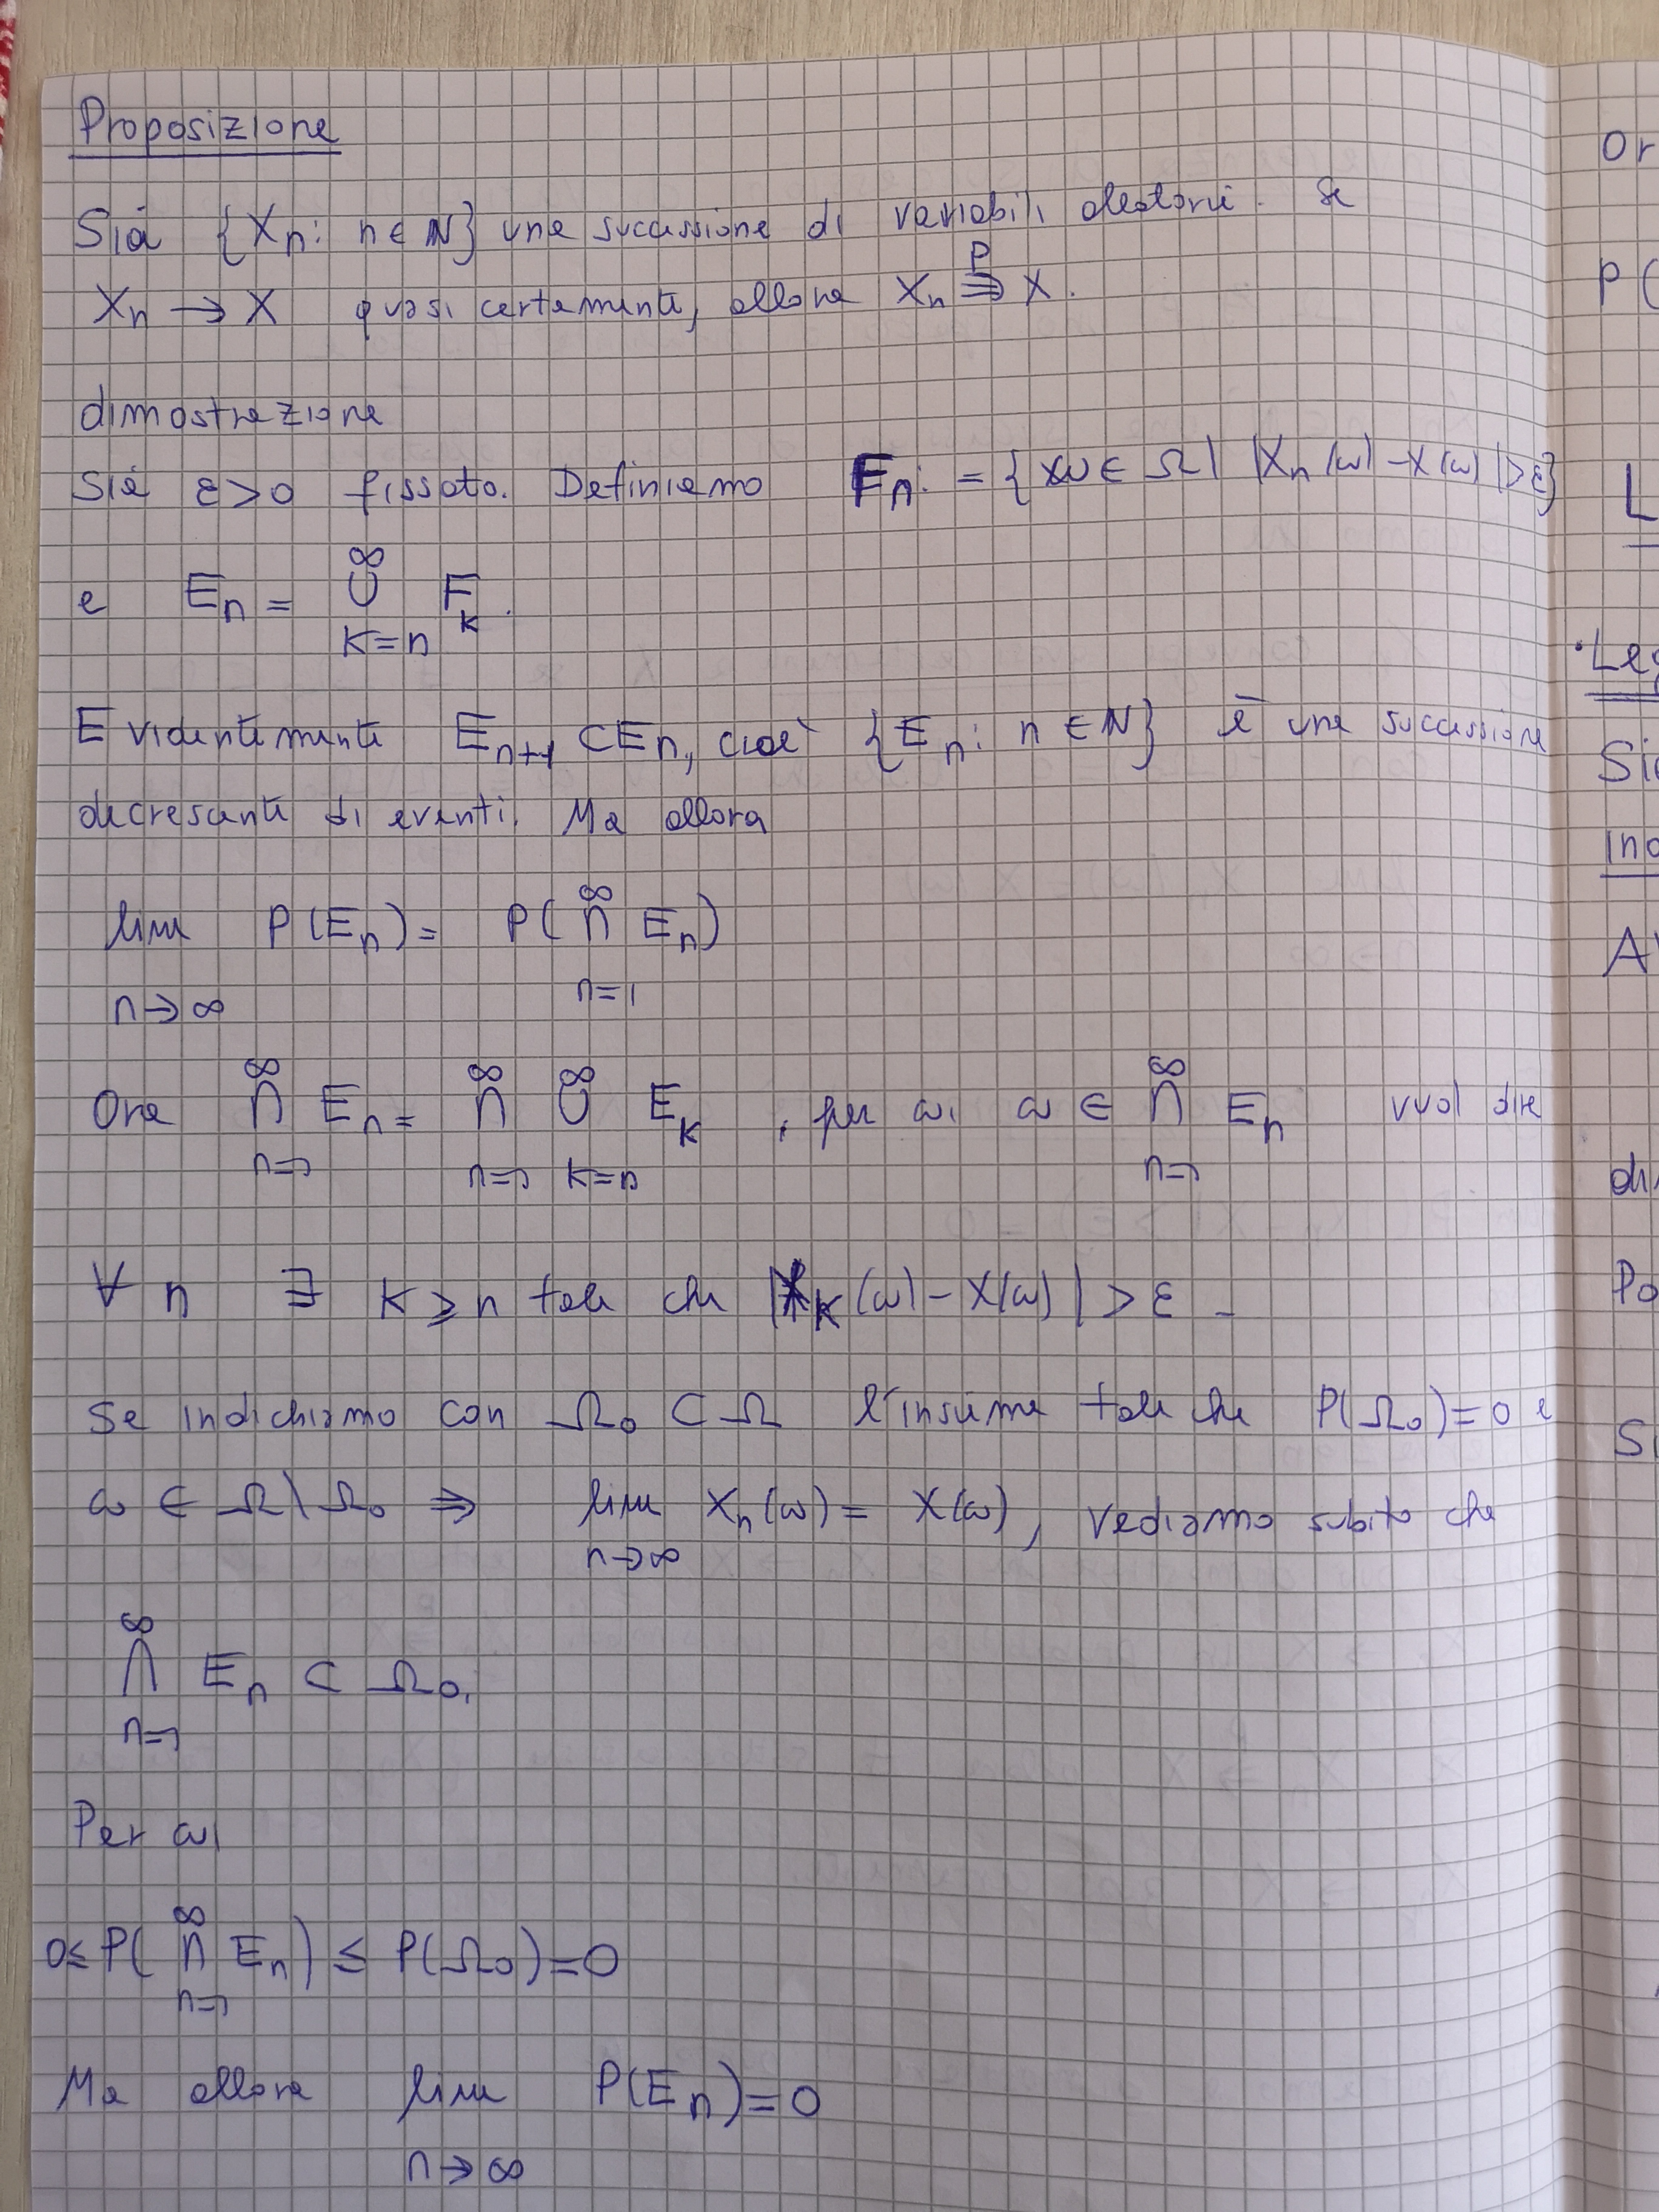 Proposizione
Sia {Xn: n ∈ ℕ} una successione di variabili aleatorie. Se
Xn → X quasi certamente, allora Xn ⇒ᴾ X.
dimostrazione
Sia ε>0 fissato. Definiamo Fn: = {ω ∈ Ω | |Xn(ω) - X(ω)|>ε}
e En = ∞ ∪ k=n Fk.
Evidentemente En+1 ⊂ En, cioè {En: n ∈ ℕ} è una successione
decrescente di eventi. Ma allora
lim n→∞ P(En) = P(∞ ∩ n=1 En)
Ora ∞ ∩ n=1 En = ∞ ∩ n=1 ∞ ∪ k=n Ek, per cui ω ∈ ∞ ∩ n=1 En vuol dire
∀ n ∃ k ≥ n tale che |Xk(ω) - X(ω)| > ε
Se indichiamo con Ω₀ ⊂ Ω l'insieme tale che P(Ω₀)=0 e
ω ∈ Ω\Ω₀ ⇒ lim n→∞ Xn(ω) = X(ω), vediamo subito che
∞ ∩ n=1 En ⊂ Ω₀.
Per cui
0≤ P(∞ ∩ n=1 En) ≤ P(Ω₀)=0
Ma allora lim n→∞ P(En)=0
Or
P(
L
Leg
Sia
ind
Po